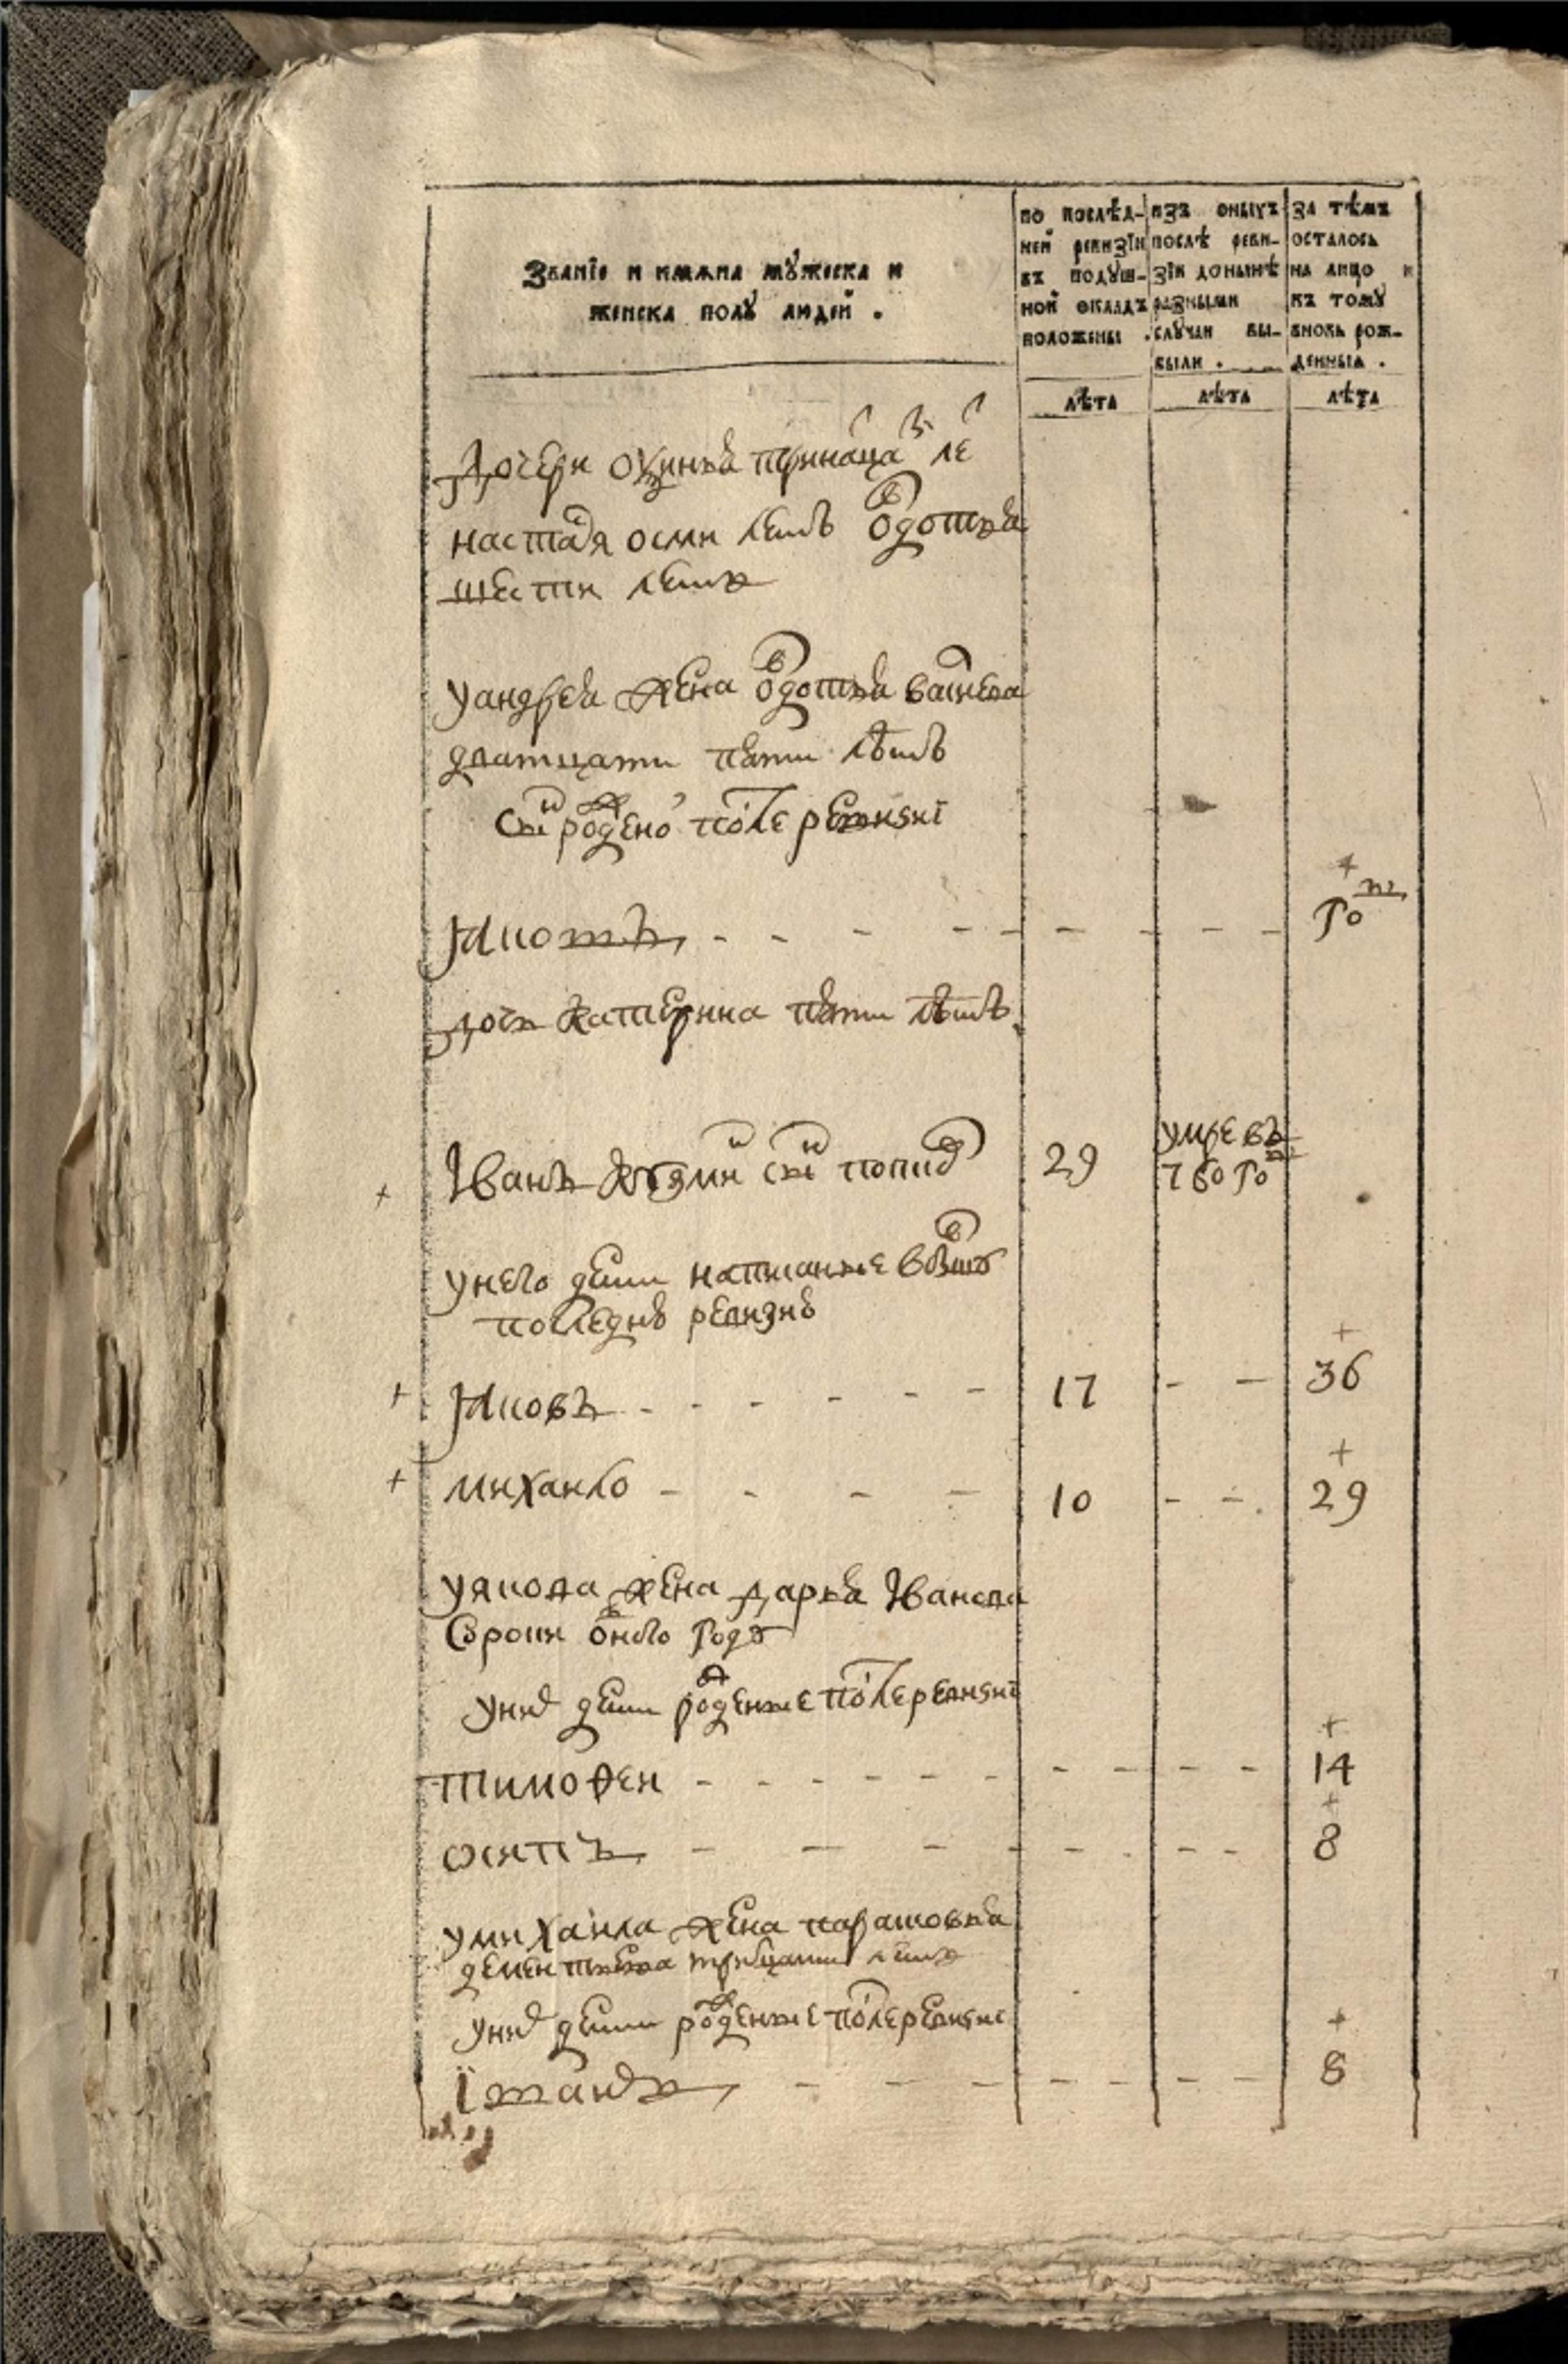 Званїе и имѧна мꙋжеска и
женска полꙋ людей .
по послѣд-
ней ревизїи
въ подꙋш-
ной окладъ
положены .
изъ оныхъ
послѣ реви-
зїи донынѣ
разными
слꙋчаи вы-
были .
за тѣмъ
осталось
на лицо и
къ томꙋ
вновь рож-
денныя .
лѣта лѣта лѣта
дочери
настася осми летъ одотья
шести летъ
у андрея жена одотья
дватцати пяти летъ
сын рожденой после ревизиі
пяти летъ
дочь катерина пяти летъ
Иванъ сын 29 умре въ
760 го
у него дети написанные в
последнѣ ревизиѣ
Яковъ - - - - - 17 - - 36
михаило - - - - 10 - - 29
у якова жена дарья Іванова
сорок одного году
у них дети рожденые после ревизиі
тимофеи - - - - - - - - - - 14
осипъ - - - - - - - - 8
у михаила жена
дементьева тритцати летъ
у них дети рожденые после ревизиі
8